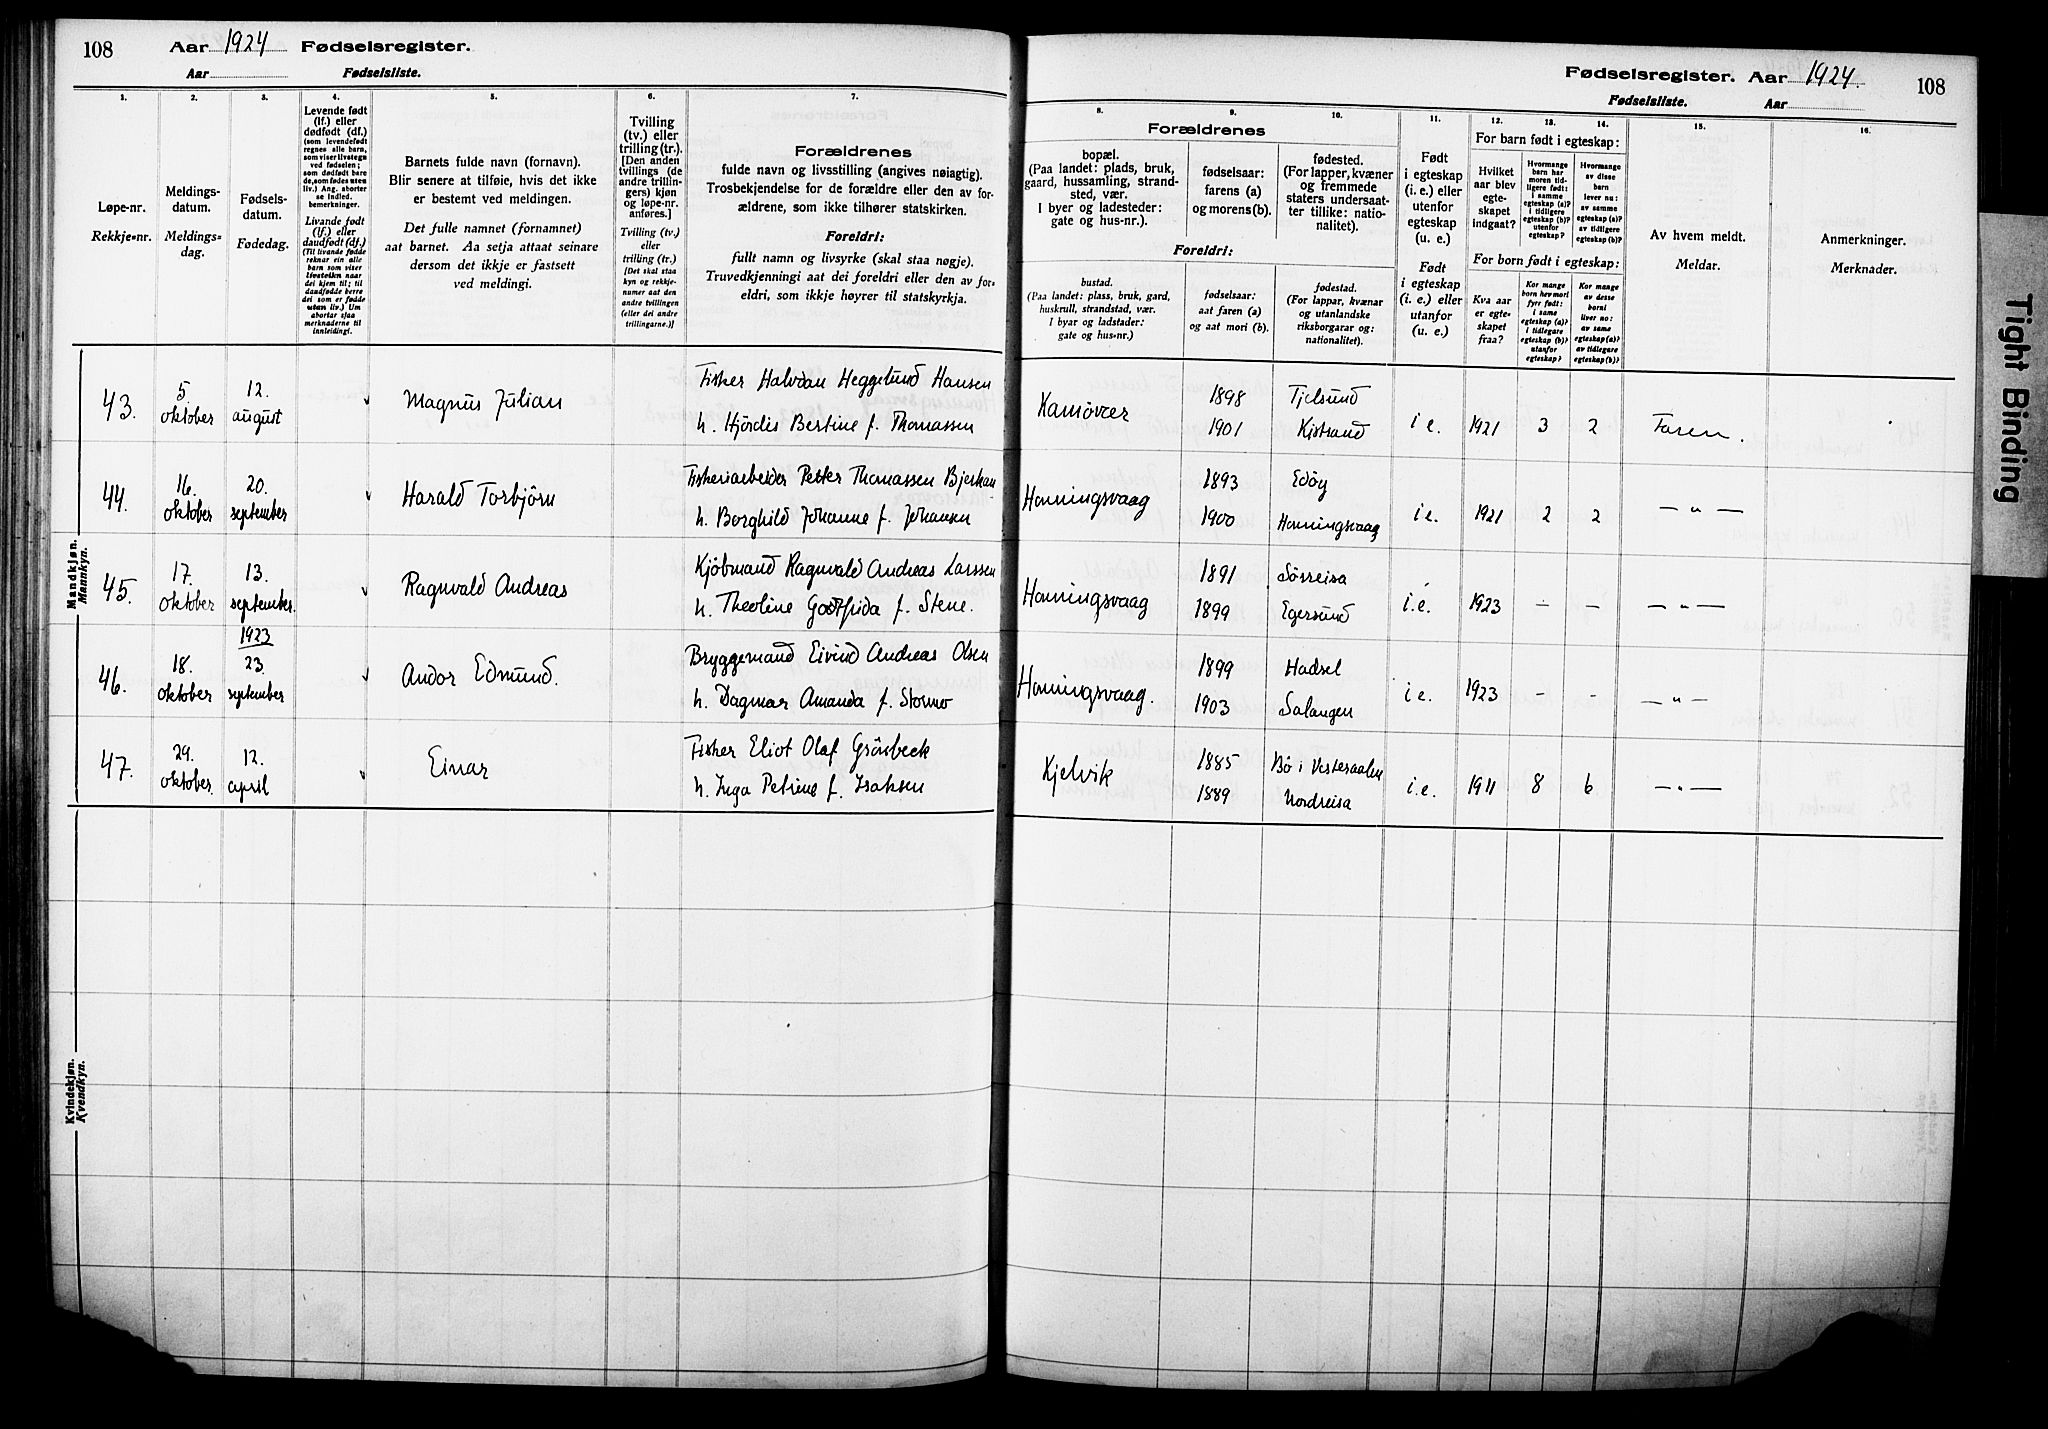 108
Aar 1924 Fødselsregister.
Aar Fødselsliste.
Fødselsregister. Aar 1924.
Fødselsliste. Aar
108
1.
2.
3.
4.
5.
6.
7.
Løpe-nr.
Rekkje-nr.
Meldings-
datum.
Meldings-
dag.
Fødsels-
datum.
Fødedag.
Levende født
(lf.) eller
dødfødt (df.)
(som levendefødt
regnes alle barn,
som viser livstegn
ved fødselen;
som dødfødt bare
de, som fødes uten
liv.) Ang. aborter
se indled.
bemerkninger.
Livande født
(lf.) eller
daudfødt (df.)
(Til livande fødde
reknar ein alle
barn som viser
livsteikn naar
dei kjem til; til
daudfødde berre
dei som er fødde
utan liv.) Um
abortar sjaa
merknaderne til
innleiding!
Barnets fulde navn (fornavn).
Blir senere at tilføie, hvis det ikke
er bestemt ved meldingen.
Det fulle namnet (fornamnet)
aat barnet. Aa setja attaat seinare
dersom det ikkje er fastsett
ved meldingi.
Tvilling
(tv.) eller
trilling (tr.).
[Den anden
tvillings (de
andre trillin-
gers) kjøn
og løpe-nr.
anføres.]
Tvilling (tv.)
eller
trilling (tr.)
[Det skal staa
kyn og rekkje-
numer aat den
andre tvillingen
(eller dei andre
trillingarne.)]
Forældrenes
fulde navn og livsstilling (angives nøiagtig).
Trosbekjendelse for de forældre eller den av for-
ældrene, som ikke tilhører statskirken.
Foreldri:
fullt namn og livsyrke (skal staa nøgje).
Truvedkjenningi aat dei foreldri eller den av for-
eldri, som ikkje høyrer til statskyrkja.
8.
9.
10.
11.
12.
13.
14.
15.
16.
Forældrenes
bopæl.
(Paa landet: plads, bruk,
gaard, hussamling, strand-
sted, vær.
I byer og ladesteder:
gate og hus-nr.).
fødselsaar:
farens (a)
og morens (b).
fødested.
(For lapper, kvæner
og fremmede
staters undersaat-
ter tillike: natio-
nalitet).
Foreldri:
bustad.
(Paa landet: plass, bruk, gard,
huskrull, strandstad, vær.
I byar og ladstader:
gate og hus-nr.)
fødselsaar:
aat faren (a)
og aat mori (b).
fødestad.
(For lappar, kvænar
og utanlandske
riksborgarar og:
nationalitet).
Født
i egteskap
(i. e.) eller
utenfor
egteskap
(u. e.)
Født
i egteskap
(i. e.) eller
utanfor
(u. e.)
For barn født i egteskap:
Hvilket
aar blev
egte-
skapet
indgaat?
Hvormange
barn har
moren tid-
ligere født:
i samme
egteskap (a)?
i tidligere
egteskap (b)?
utenfor
egteskap?
Hvormange
av disse
barn
lever nu:
av samme
egteskap (a)?
av tidligere
egteskap (b)?
For born født i egteskap:
Kva aar
er egte-
skapet
fraa?
Kor mange
born hev mori
fyrr født:
i same
egteskap (a)?
i tidlegare
egteskap (b)?
utanfor
egteskap?
Kor mange
av desse
borni
liver no:
av same
egteskap (a)?
av tidlegare
egteskap (b)?
Av hvem meldt.
Meldar.
Anmerkninger.
Merknader.
Mandkjøn.
Mannkyn.
43. 5. oktober 12. august Magnus Julian Fisker Halvdan Heggelund Hansen
h. Hjördis Bertine f. Thomassen
Kamøvær 1898 Tjelsund
1901 Kistrand i e. 1921 3 2 Faren.
44. 16. oktober 20. september Harald Torbjörn Fiskeriarbeider Petter Thomassen Bjerkan
h. Borghild Johanne f. Johansen
Honningsvaag 1893 Edöy
1900 Honningsvaag i.e. 1921 2 2 — " —
45. 17. oktober 13. september. Ragnvald Andreas Kjöbmand Ragnvald Andreas Larssen
h. Theoline Gottfrida f. Stene.
Honningsvaag 1891 Sörreisa
1899 Egersund i.e. 1923 – – — " —
46. 18. oktober 1923 23. september Andor Edmund. Bryggemand Eivind Andreas Olsen
h. Dagmar Amanda f. Stormo
Honningsvaag. 1899 Hadsel
1903 Salangen i e. 1923 - - — " —
47. 29. oktober. 12. april Einar Fisker Eliot Olaf Grönbeck
h. Inga Petrine f. Isaksen
Kjelvik 1885 Bö i Vesteraalen
1889 Nordreisa i.e. 1911 8 6 — " —
Kvindekjøn.
Kvendkyn.
Tight Binding